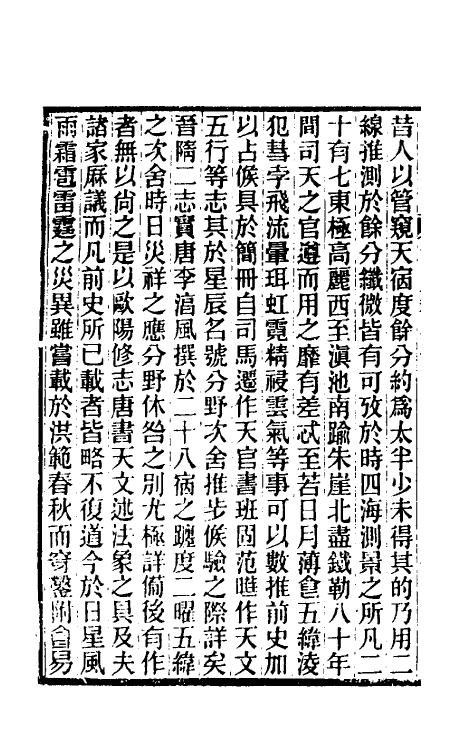 昔人以管窺天宿度餘分約爲太半少未得其的乃用二
線推測於餘分纖微皆有可攷於時四海測景之所凡二
十有七東極高麗西至滇池南踰朱崖北盡鐵勒八十年
間司天之官遵而用之靡有差忒至若日月薄食五緯淩
犯彗孛飛流暈珥虹霓精祲雲氣等事可以數推前史加
以占候具於簡冊自司馬遷作天官書班固范曄作天文
五行等志其於星辰名號分野次舍推步候驗之際詳矣
晉隋二志實唐李淳風撰於二十八宿之躔度二曜五緯
之次舍時日災祥之應分野休咎之別尤極詳備後有作
者無以尚之是以歐陽修志唐書天文述法象之具及夫
諸家麻議而凡前史所已載者皆略不復道今於日星風
雨霜雹雷霆之災異雖嘗載於洪範春秋而穿鑿附會易